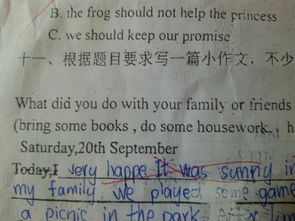 B. the frog should not help the princess
C. we should keep our promise
十一、根据题目要求写一篇小作文，不少
What did you do with your family or friends
(bring some books , do some housework, h
Saturday,20th September
Today,I very happe It was sunny in
my family we played some game
a picnic in the park